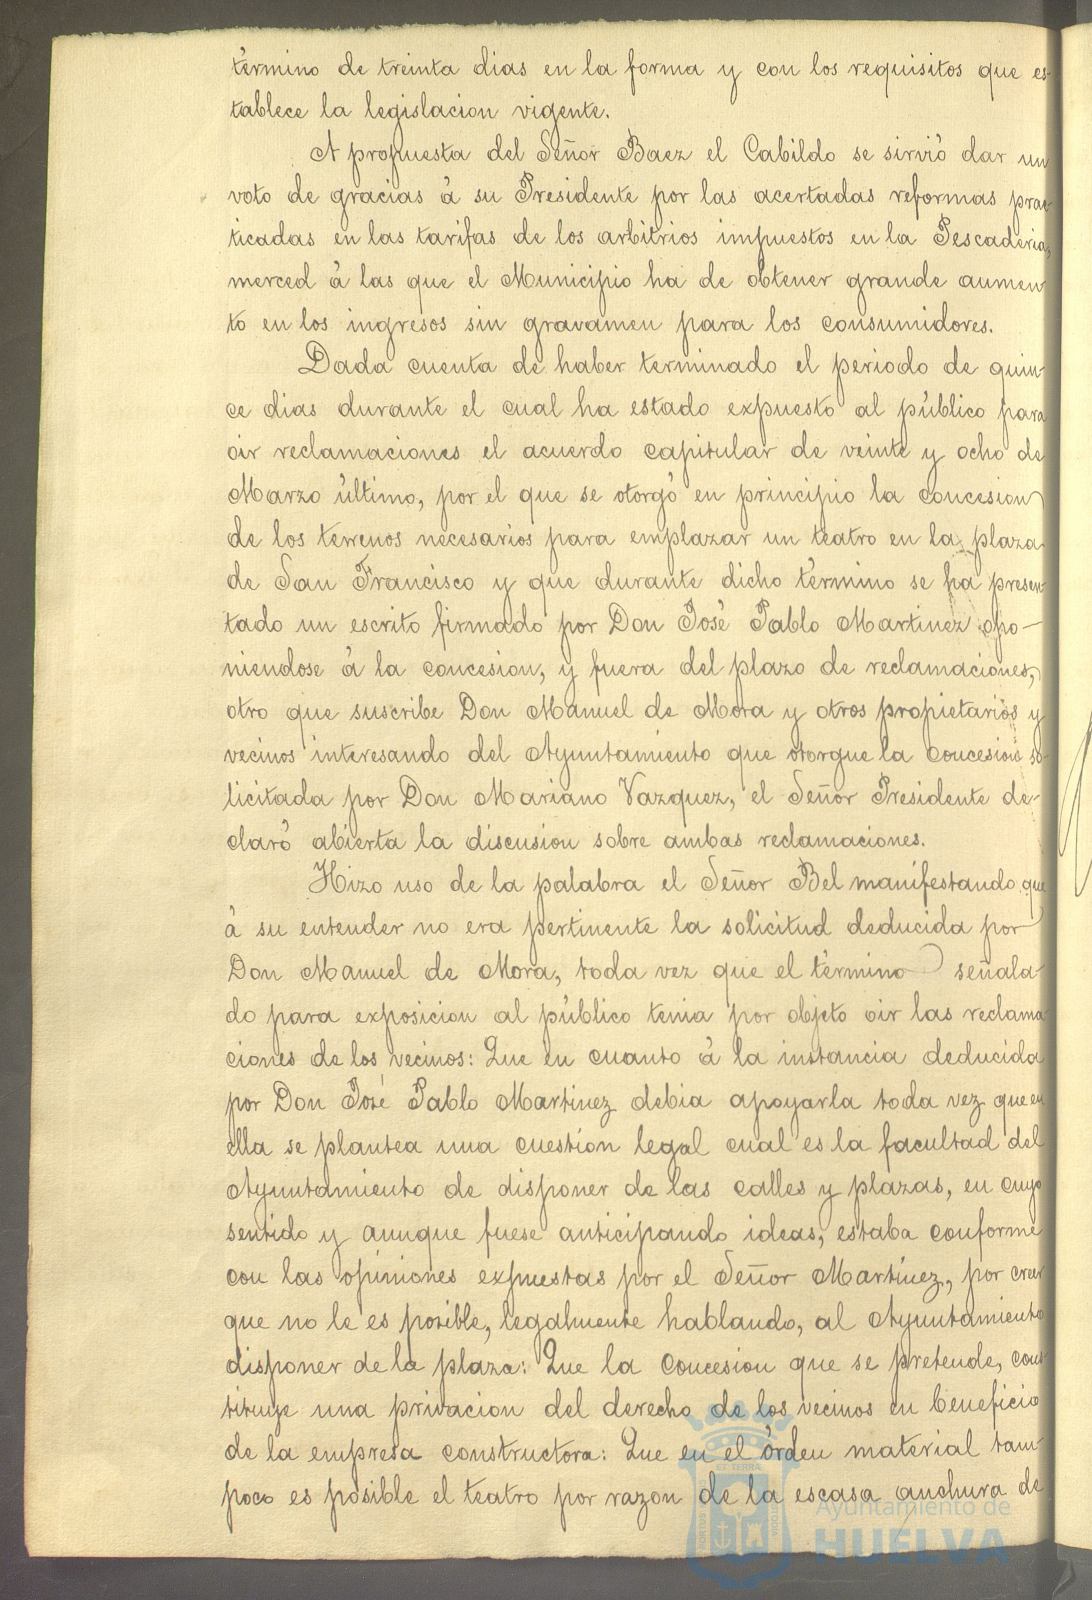 término de treinta dias en la forma y con los requisitos que es-
tablece la legislacion vigente.
A propuesta del Señor Baez el Cabildo se sirvió dar un
voto de gracias á su Presidente por las acertadas reformas prac-
ticadas en las tarifas de los arbitrios impuestos en la Pescaderia,
merced á las que el Municipio ha de obtener grande aumen-
to en los ingresos sin gravamen para los consumidores.
Dada cuenta de haber terminado el periodo de quin-
ce dias durante el cual ha estado expuesto al público para
oir reclamaciones el acuerdo capitular de veinte y ocho de
Marzo último, por el que se otorgó en principio la concesion
de los terrenos necesarios para emplazar un teatro en la plaza
de San Francisco y que durante dicho término se ha presen-
tado un escrito firmado por Don José Pablo Martinez opo-
niendose á la concesion, y fuera del plazo de reclamaciones,
otro que suscribe Don Manuel de Mora y otros propietarios y
vecinos interesando del Ayuntamiento que otorgue la concesion so-
licitada por Don Mariano Vazquez, el Señor Presidente de-
claró abierta la discusion sobre ambas reclamaciones.
Hizo uso de la palabra el Señor Bel manifestando que
á su entender no era pertinente la solicitud deducida por
Don Manuel de Mora, toda vez que el término señala-
do para exposicion al público tenia por objeto oir las reclama
ciones de los vecinos: Que en cuanto á la instancia deducida
por Don José Pablo Martinez debia apoyarla toda vez que en
ella se plantea una cuestión legal cual es la facultad del
Ayuntamiento de disponer de las calles y plazas, en cuyo
sentido y aunque fuese anticipando ideas, estaba conforme
con las opiniones expuestas por el Señor Martínez, por creer
que no le es posible, legalmente hablando, al Ayuntamiento
disponer de la plaza: Que la concesion que se pretende, cons-
tituye una privacion del derecho de los vecinos en beneficio
de la empresa constructora: Que en el órden material tam-
poco es posible el teatro por razon de la escasa anchura de
Ayuntamiento de
HUELVA